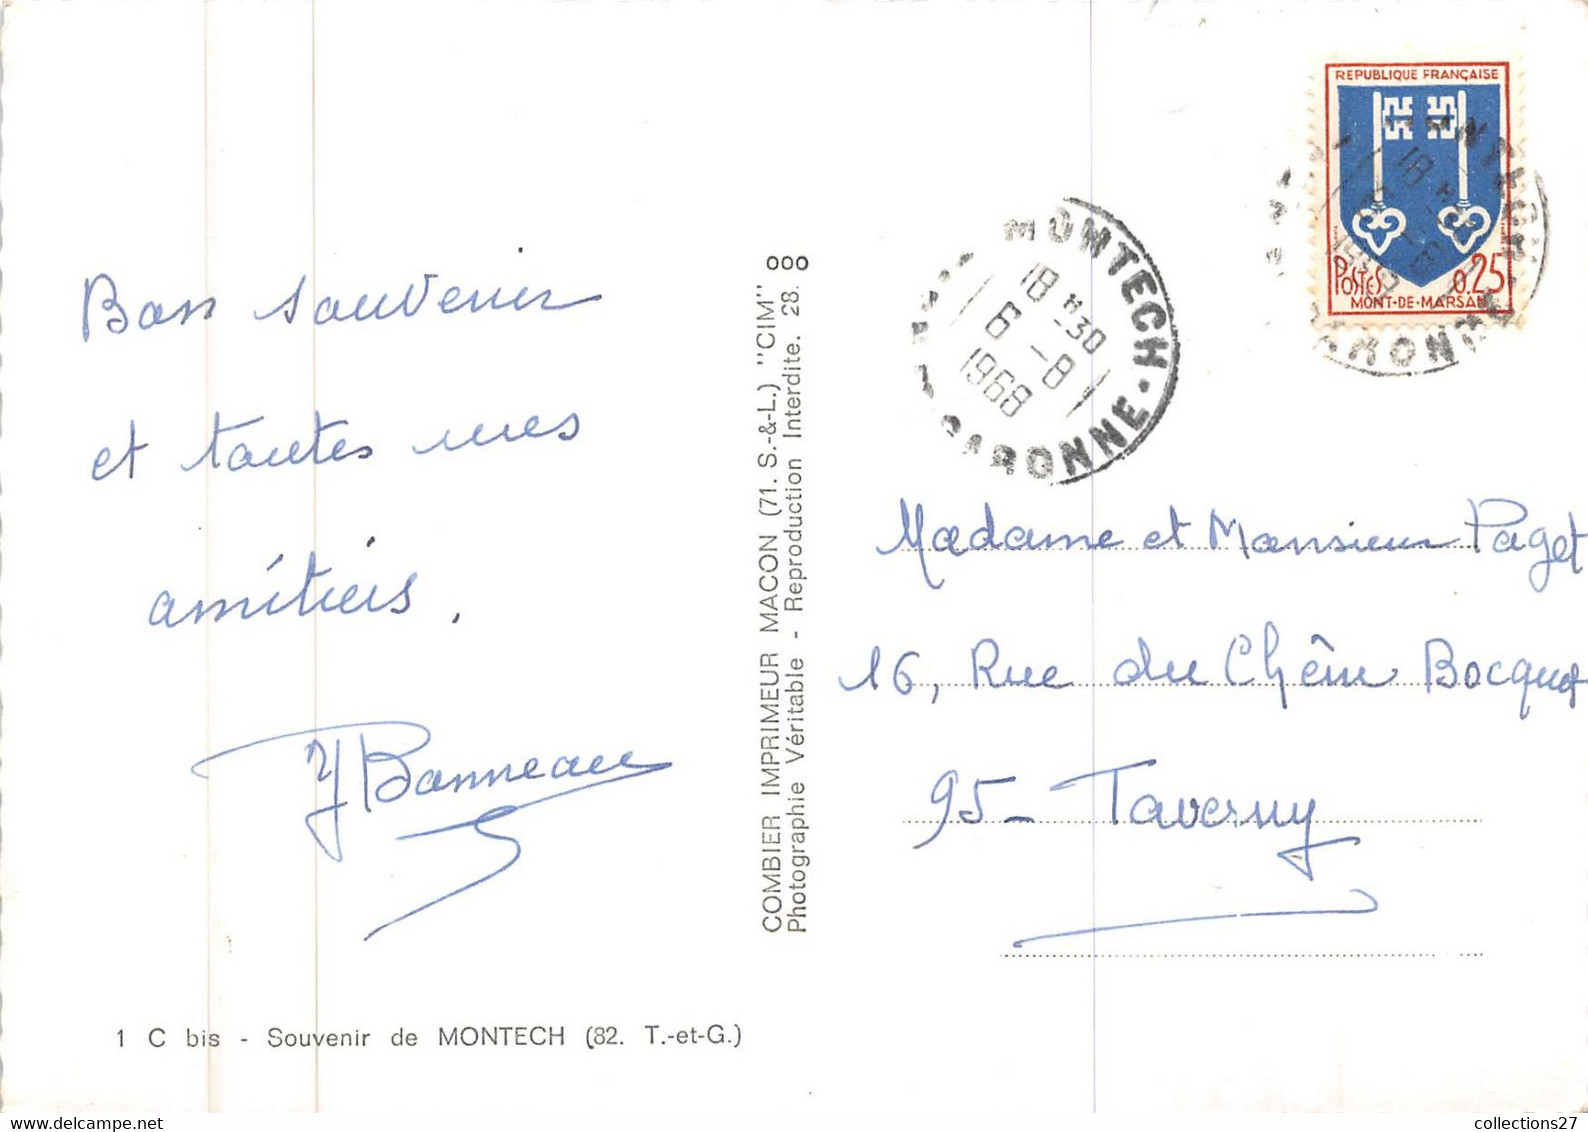 Bon souvenir
et toutes mes
amitiés.
Y Bonneau
1 C bis - Souvenir de MONTECH (82. T.-et-G.)
COMBIER IMPRIMEUR MACON (71. S.-&-L.) "CIM"
Photographie Véritable - Reproduction Interdite. 28.
REPUBLIQUE FRANÇAISE
POSTES 0.25
MONT-DE-MARSAN
MONTECH
18 H 30
6 - 8
1968
GARONNE
Madame et Monsieur Paget
16, Rue du Chêne Bocquet
95 - Taverny
collections27